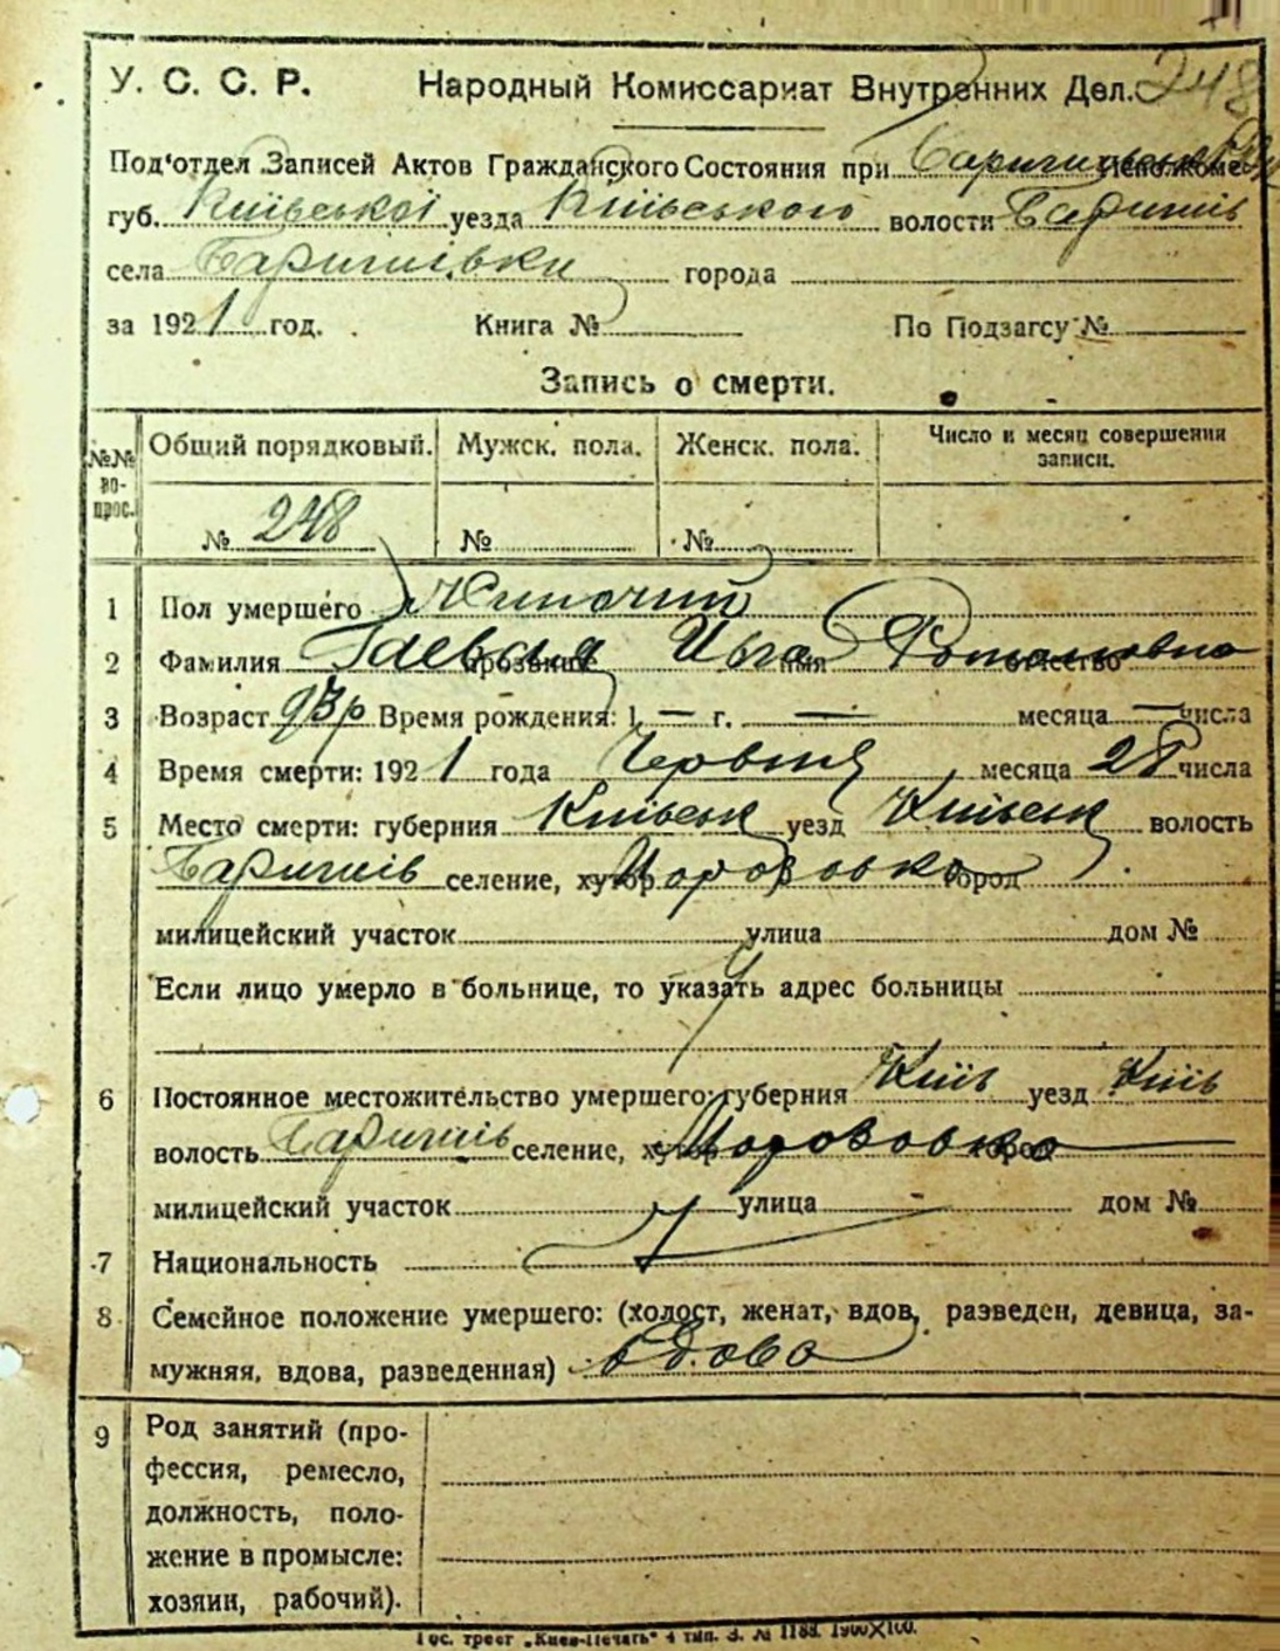 248
У. С. С. Р. Народный Комиссариат Внутренних Дел.
Под'отдел Записей Актов Гражданского Состояния при Исполкоме
губ. Київської уезда Київського волости Баришів
села Баришівки города
за 1921 год. Книга № По Подзагсу №
Запись о смерти.
№№ во-прос. Общий порядковый. Мужск. пола. Женск. пола. Число и месяц совершения записи.
№ 248 № №
1 Пол умершего Жиночий
2 Фамилия Гаевская прозвище Ивга имя Романовна отчество
3 Возраст 93 р Время рождения: 1 — г. — месяца — числа
4 Время смерти: 1921 года Червня месяца 28 числа
5 Место смерти: губерния Київськ уезд Київськ волость
Баришів селение, хутор город
милицейский участок улица дом №
Если лицо умерло в больнице, то указать адрес больницы
6 Постоянное местожительство умершего: губерния Київ уезд Київ
волость Баришів селение, хутор город
милицейский участок улица дом №
7 Национальность
8 Семейное положение умершего: (холост, женат, вдов, разведен, девица, за-
мужняя, вдова, разведенная) вдова
9 Род занятий (про-
фессия, ремесло,
должность, поло-
жение в промысле:
хозяин, рабочий).
Гос. трест „Киев-Печать" 4 тип. З. № 1188. 1900×100.